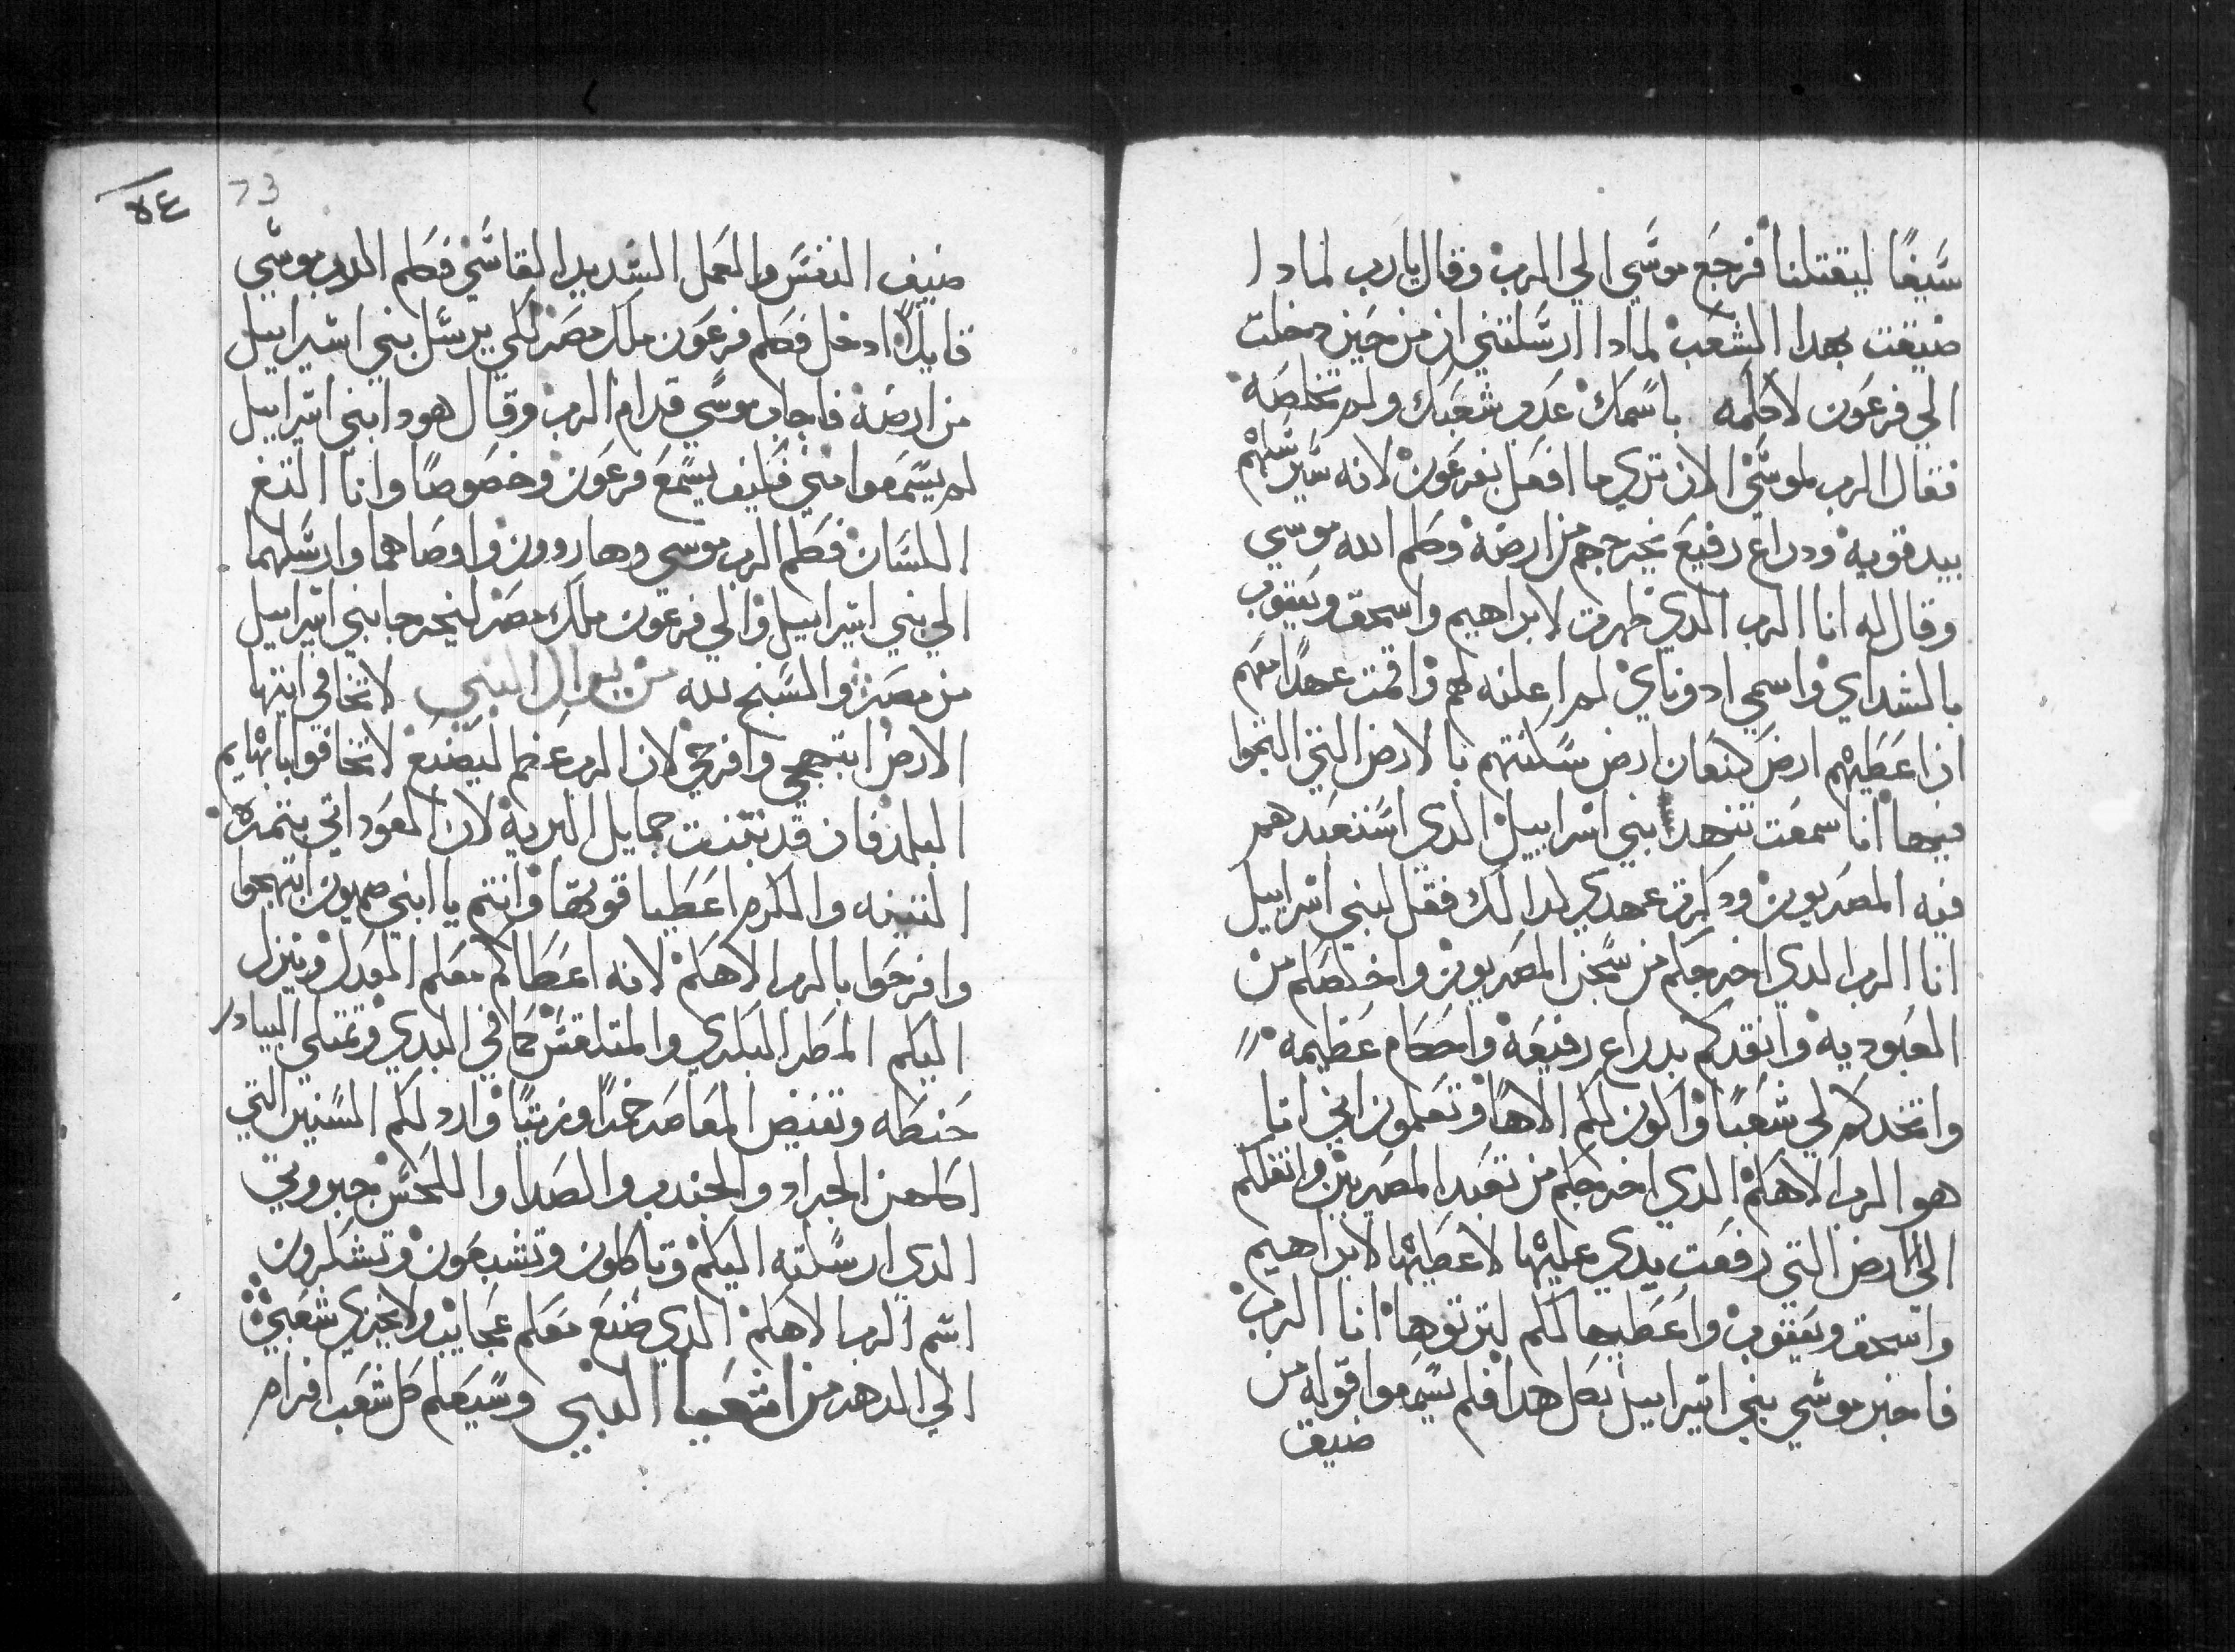 سيفًا ليقتلنا فرجع موسي الي الرب وقال يارب لمادا
ضيقت بهدا الشعب لمادا ارسلتني ان من حين دخلت
الي فرعون لاكلمه باسمك عدو شعبك ولم تخلصه
فقال الرب لموسي الان تري ما افعل بفرعون لانه سيرسلهم
بيد قويه ودراع رفيع يخرجهم من ارضه وكلم الله موسي
وقال له انا الرب الدي ظهرت لابراهيم واسحق ويعقوب
بالشداي واسمي ادوناي لم اعلنه لهم واقمت عهدًا معهم
ان اعطيهم ارض كنعان ارض سكنتهم بالارض التي التجوا
فيها انا سمعت تنهد بني اسراييل الدي استعبدهم
فيه المصريون ودكرت عهدي لدالك فقل لبني اسراييل
انا الرب الدي اخرجكم من سجن المصريون واخلصكم من
العبوديه وانقدكم بدراع رفيعه واحكام عظيمه
واتخدكم لي شعبًا واكون لكم الاهًا وتعلمون اني انا
هو الرب الاهكم الدي اخرجكم من تعبد المصريين وانقلكم
الي الارض التي رفعت يدي عليها لاعطيها لابراهيم
واسحق ويعقوب واعطيها لكم لترتوها انا الرب
فاخبر موسي بني اسراييل بكل هدا فلم يسمعوا قوله من
ضيق
٥٤ 73
ضيق النفس والعمل الشديد القاسي فكلم الرب موسي
قايلاً ادخل فكلم فرعون ملك مصر لكي يرسل بني اسراييل
من ارضه فاجاب موسي قدام الرب وقال هودا بني اسراييل
لم يسمعوا مني فكيف يسمع فرعون وخصوصًا وانا التغ
اللسان فكلم الرب موسي وهاروون واوصاهما وارسلهما
الي بني اسراييل والي فرعون ملك مصر ليخرجا بني اسراييل
من مصر والمسبح لله من يوال النبي لا تخافي ايتها
الارض ابتهجي وافرحي لان الرب عظم ليصنع لا تخافوا يا بهايم
البلد فان قد نبتت جمايل البريه لان العود اتي بتمره
التينه والكرم اعطيا قوتها وانتم يا بني صهيون ابتهجوا
وافرحوا بالرب الاهكم لانه اعطاكم معلم العدل وينزل
اليكم المطر البكري والمتلقس كما في البدي وتمتلي البيادر
حنطه وتفيض المعاصر خمرًا وزيتًا وارد لكم السنين التي
اكلهن الجراد والجندب والصدا واللحس جبروتي
الدي ارسلته اليكم وتاكلون وتشبعون وتشكرون
اسم الرب الاهكم الدي صنع معكم عجايب ولا يخزي شعبي
الي الدهر من اشعيا النبي وسيعلم كل شعب افرام